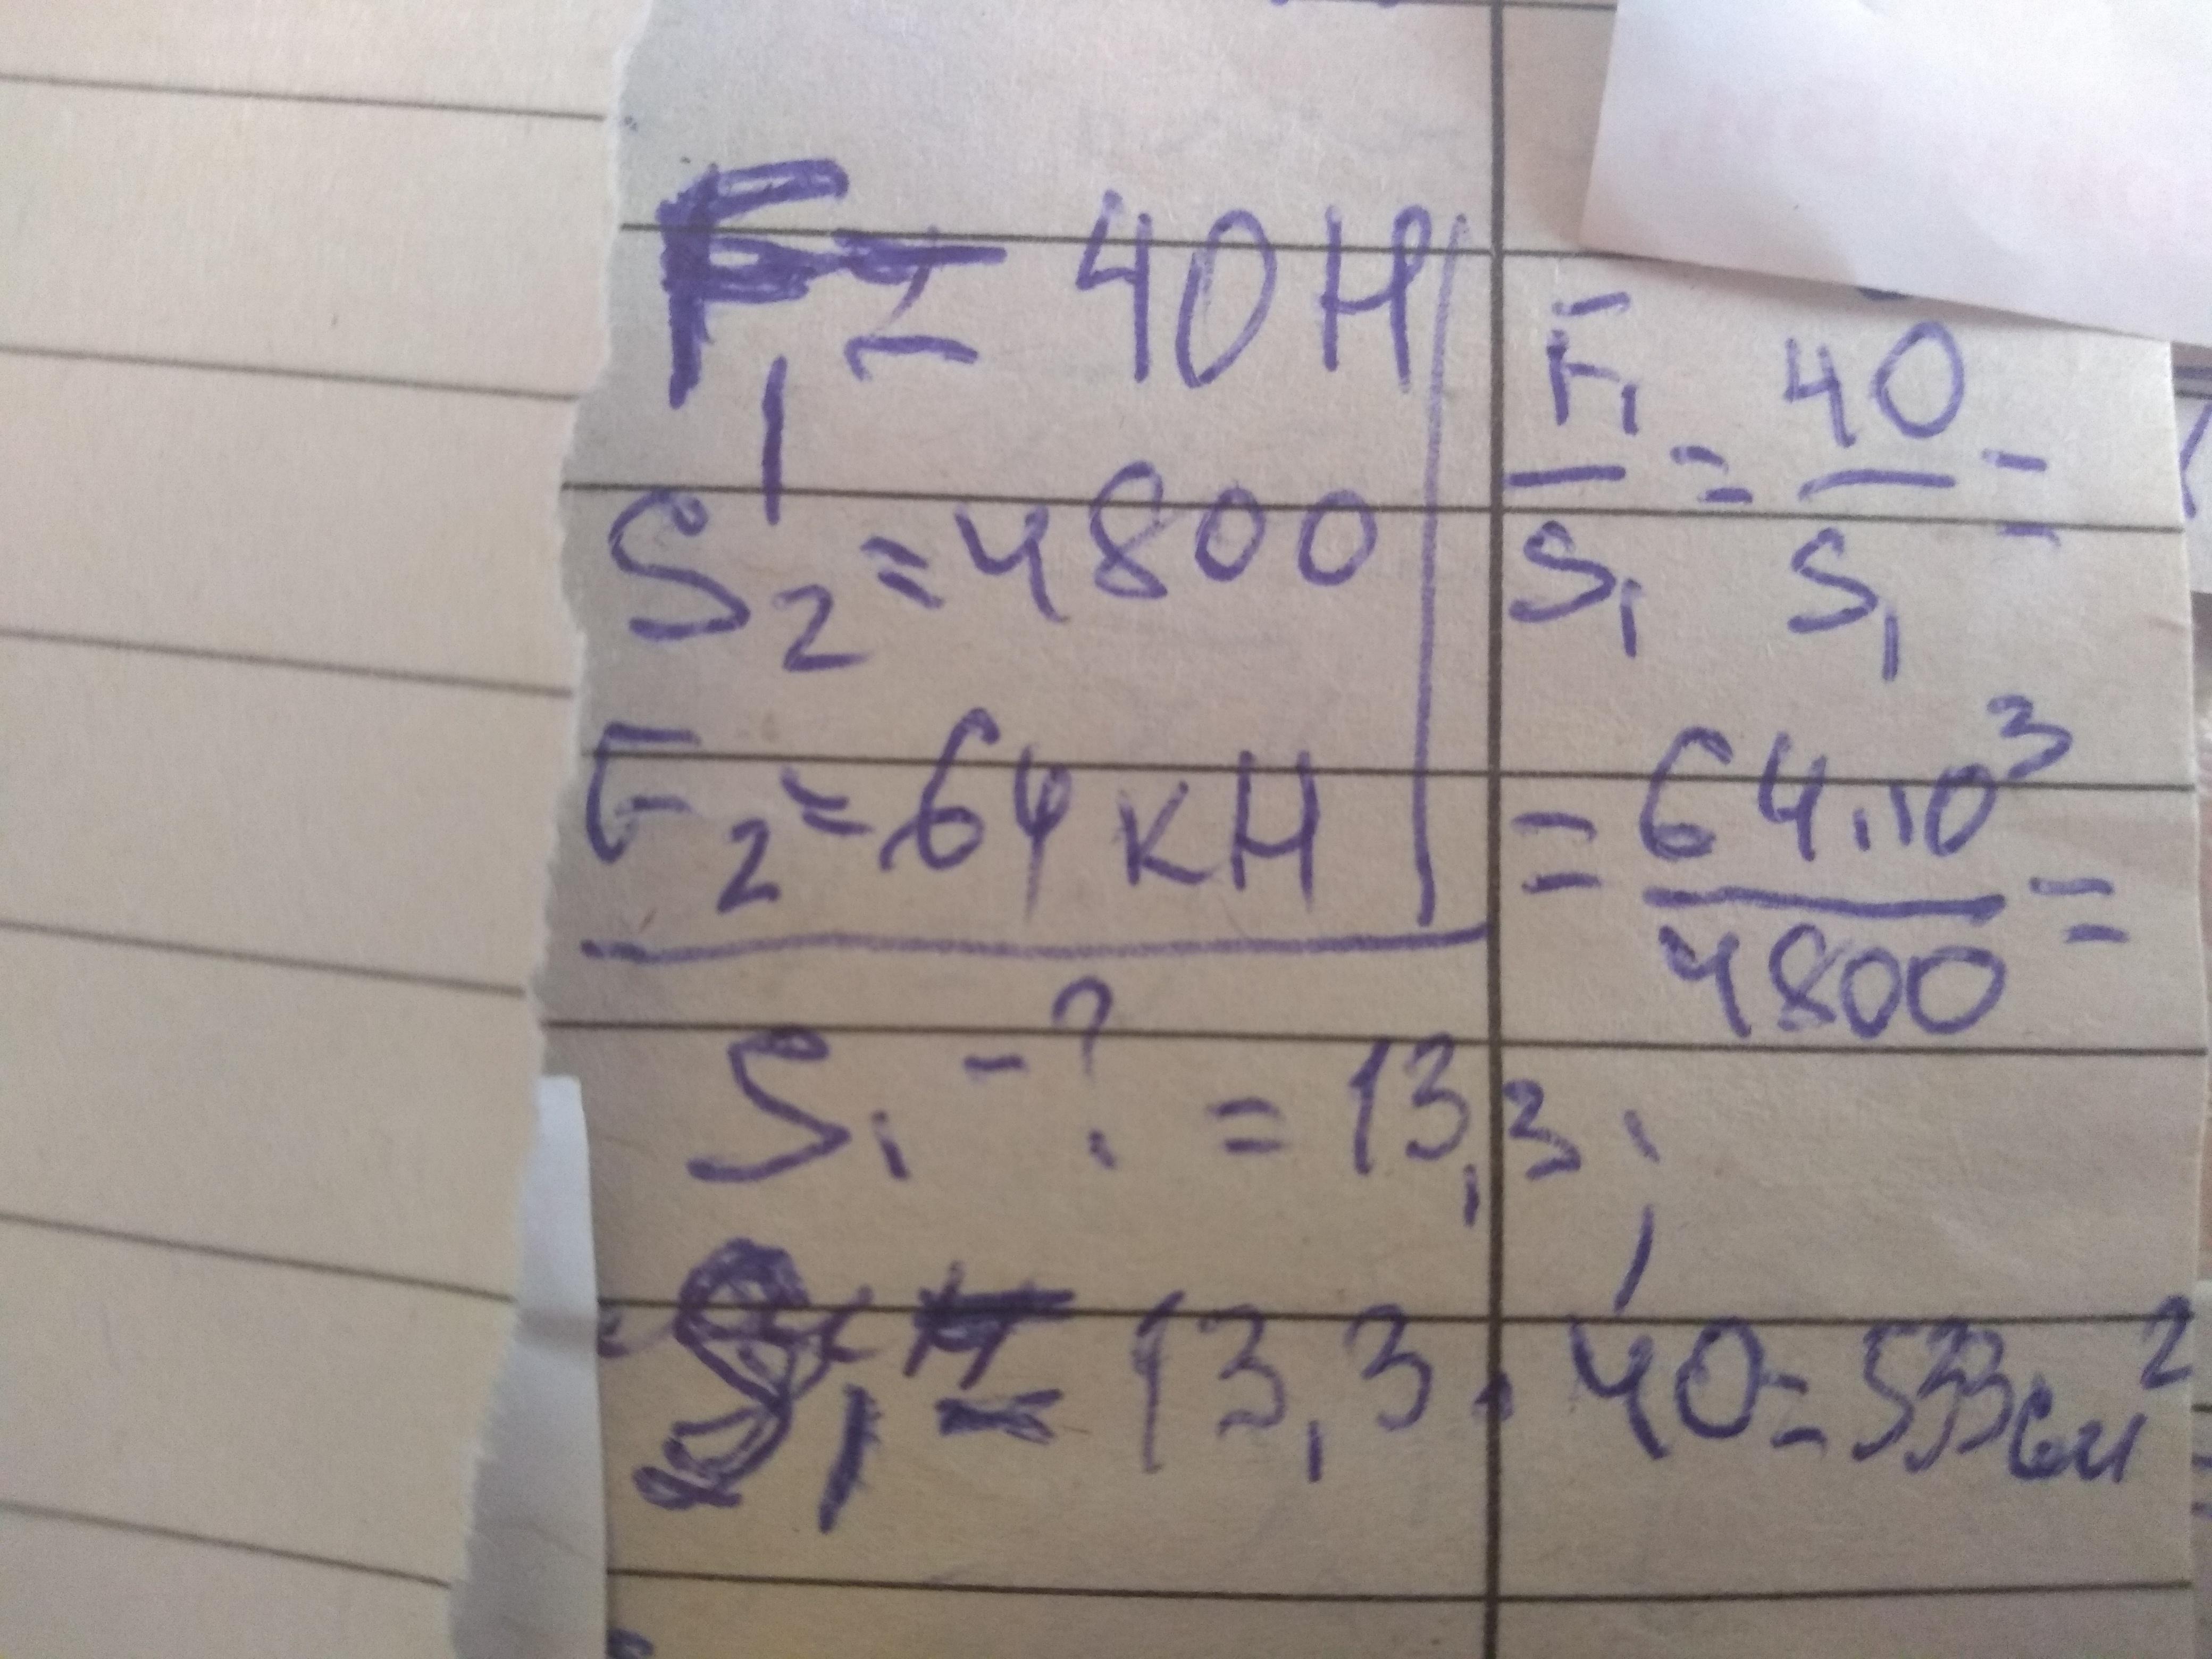 F₁ = 40 Н
S₂ = 4800
F₂ = 64 кН
S₁ - ?
F₁/S₁ = 40/S₁ =
= 64·10³/4800 =
= 13,3;
S₁ = 13,3 · 40 = 533 см²